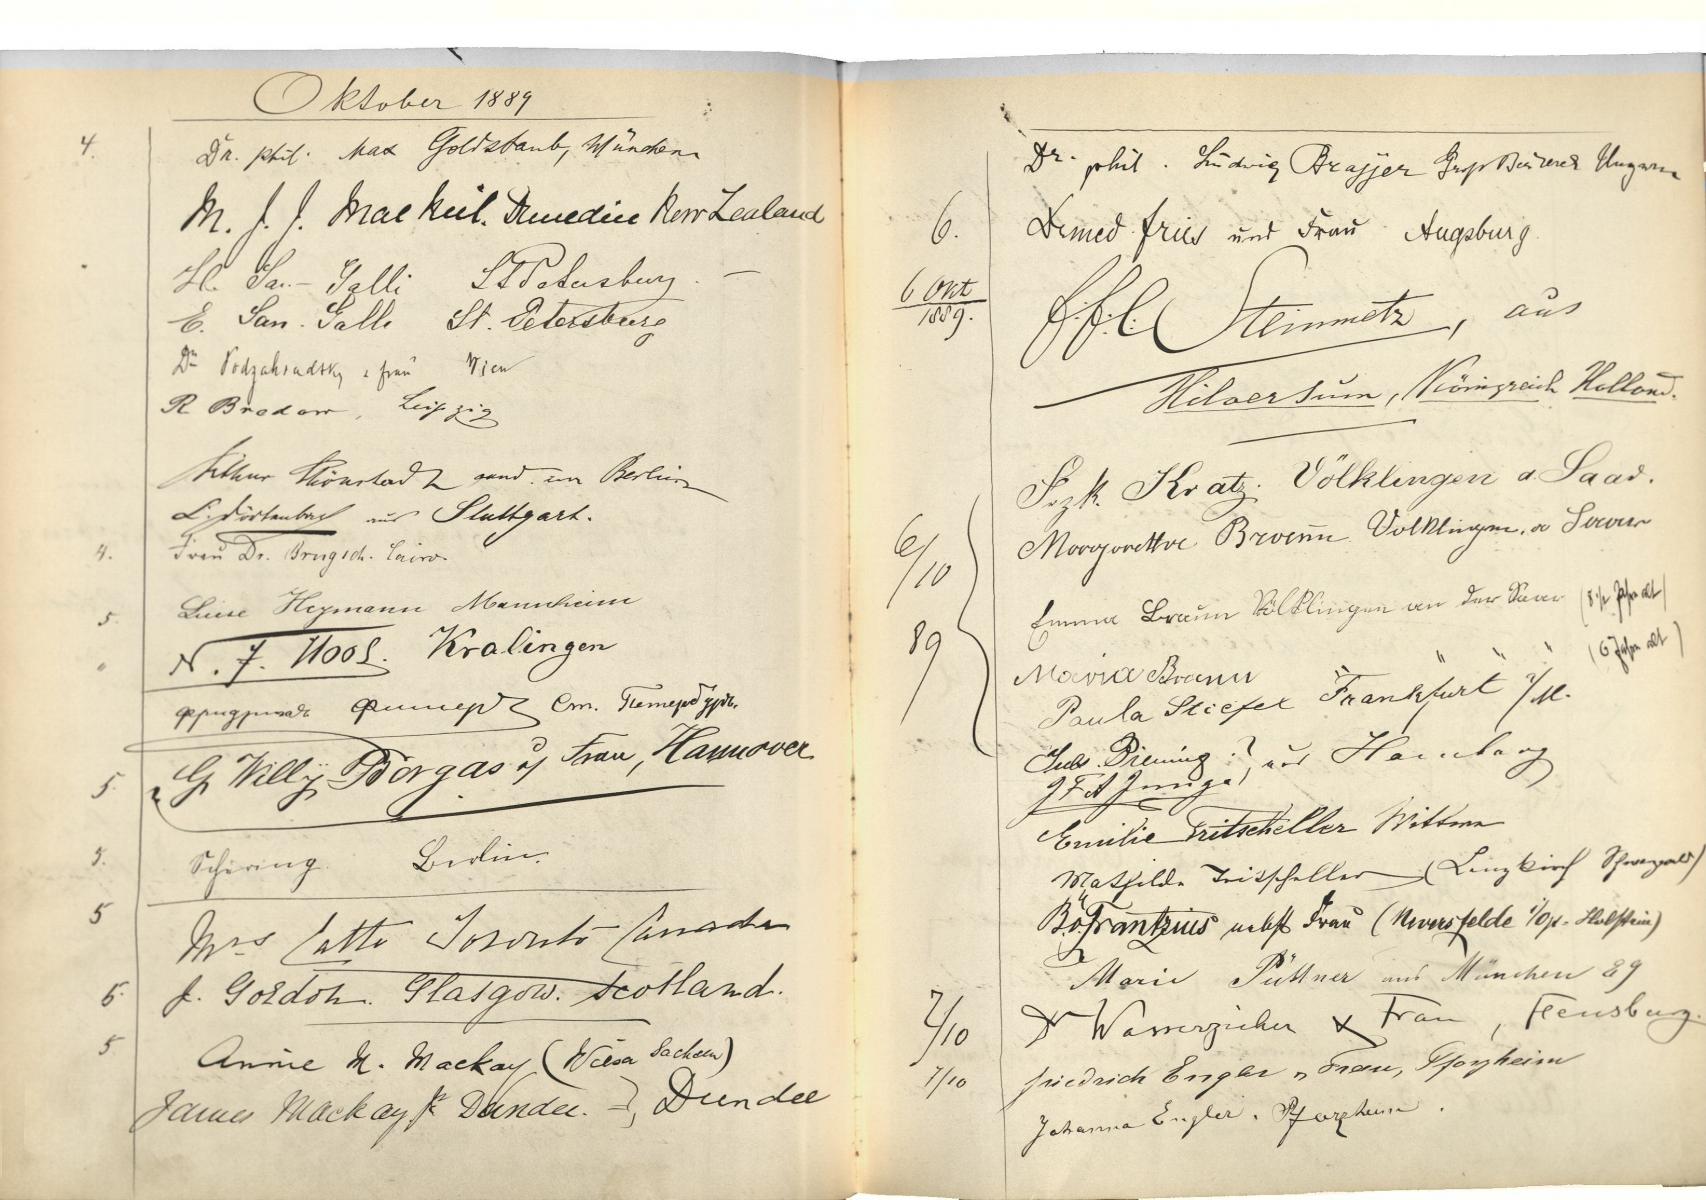 Oktober 1889
4. Dr. phil. Max Goldstaub, München
M. J. J. MacNeil. Dunedin New Zealand
H. San-Galli St Petersburg. —
E. San-Galli St. Petersburg
Dr Podzahradsky u. Frau Wien
R Bredow, Leipzig
Arthur cand. Berlin
aus Stuttgart.
4. Frau Dr. Brugsch. Cairo.
5. Luise Heymann Mannheim
N. J. Kralingen
Фридрихъ Фишеръ Ст. Петербургъ.
5. G Willy Borgas u Frau, Hannover
5. Schering Berlin.
5 Mrs Catto Toronto Canada
5. J. Gordon. Glasgow. Scotland.
5 Annie M. Mackay (Sachsen)
James Mackay Jr Dundee. }, Dundee
Dr. phil. Ludwig Ungarn
6. Dr med Fries und Frau Augsburg
6 Okt 1889. Steinmetz, aus
Hilversum, Königreich Holland.
6/10 89
Frzk. Kratz. Völklingen a Saar.
Margarethe Braun Völklingen. a Saar
Emma Braun Völklingen an der Saar (8 1/2 Jahre alt)
Maria Braun " " " (6 Jahre alt)
Paula Stiefel Frankfurt a/M.
Jubs. Piening } aus Hamburg
J F A Junge
Emilie Tritscheller Wittwe
Mathilde Tritscheller (Lenzkirch Schwarzwald)
Frantzius nebst Frau (Neversfelde Holstein)
Marie Püttner aus München 89
7/10 Dr Wasserzieher & Frau, Flensburg.
7/10 Friedrich Engler u Frau, Pforzheim
Johanna Engler. Pforzheim.